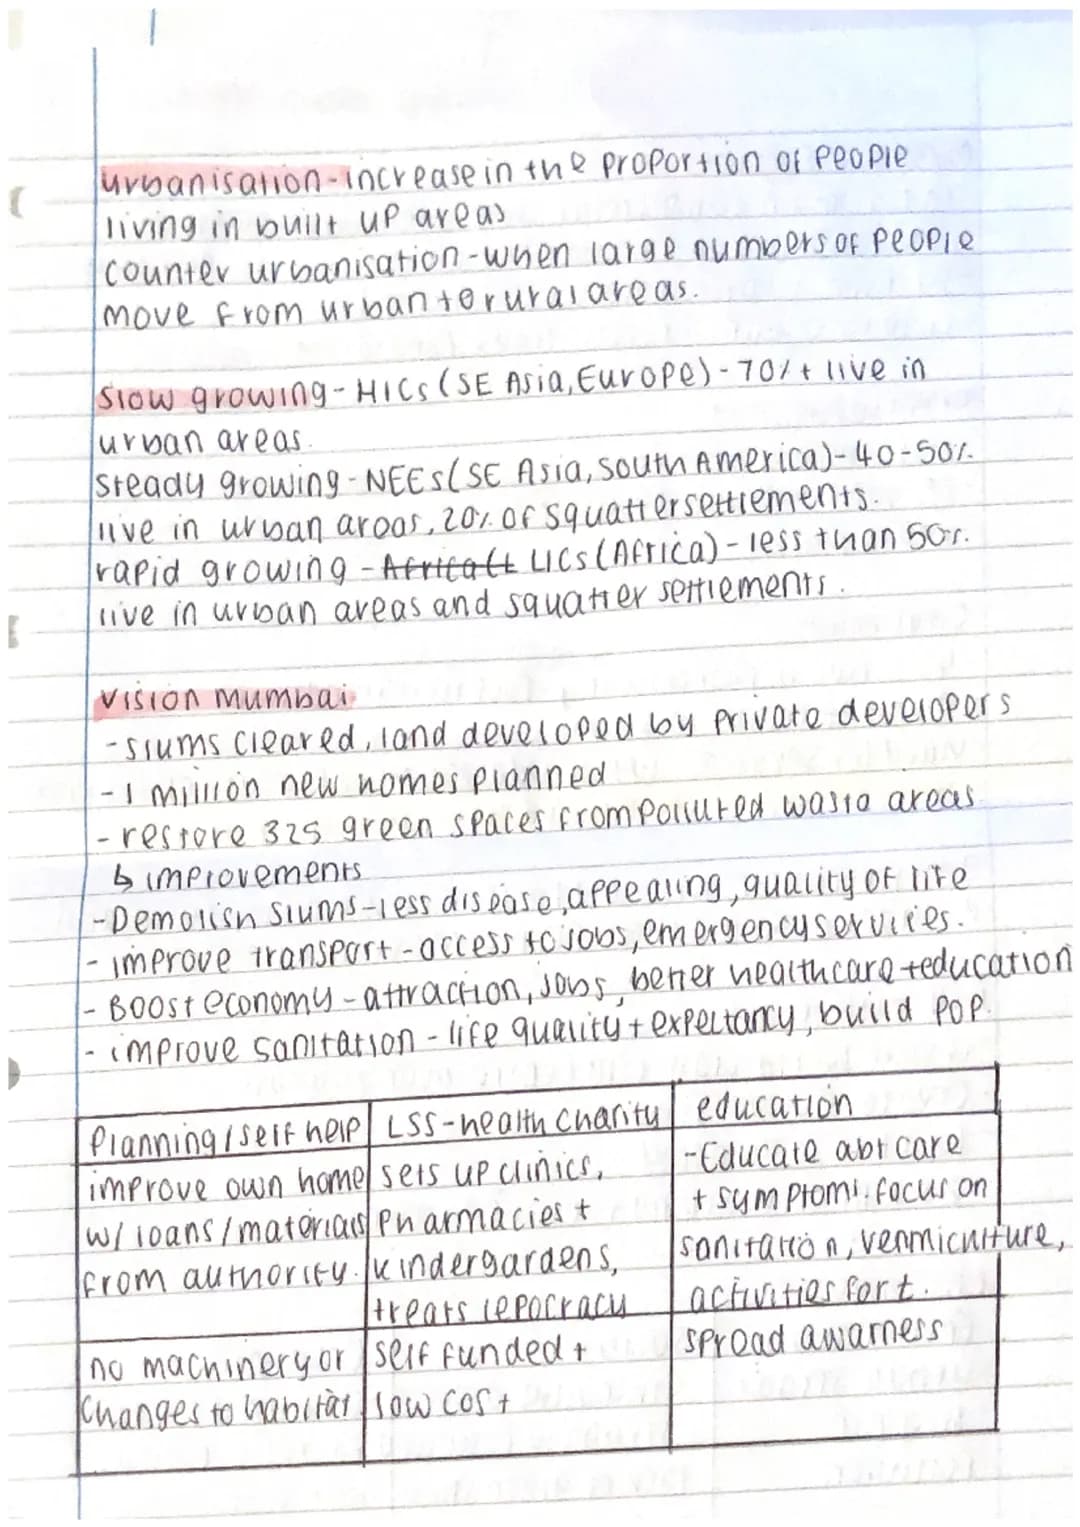 urbanisation-increase in the proportion of people
living in built up areas
counter urbanisation-when large numbers of people
move from urban to rural areas.
Slow growing-HICs (SE Asia, Europe)-70%+ live in
urban areas.
Steady growing-NEEs (SE Asia, South America)-40-50%
live in urban areas, 20% of squatter settlements.
rapid growing-Africa LICs (Africa)-less than 50%
live in urban areas and squatter settlements.
Vision Mumbai
-slums cleared, land developed by private developers
-1 million new homes planned
-restore 325 green spaces from polluted waste areas
↳ improvements
-Demolish slums-less disease, appealing, quality of life
-improve transport-access to jobs, emergency services.
-Boost economy-attraction, jobs, better healthcare+education
-improve sanitation-life quality+expectancy, build pop.
Planning/self help LSS-health charity education
improve own home sets up clinics, -Educate abt care
w/ loans/materials pharmacies + + symptoms. focus on
from authority. kindergardens, sanitation, vermiculture,
treats lepocracy activities for t.
no machinery or self funded + spread awarness
changes to habitat low cost